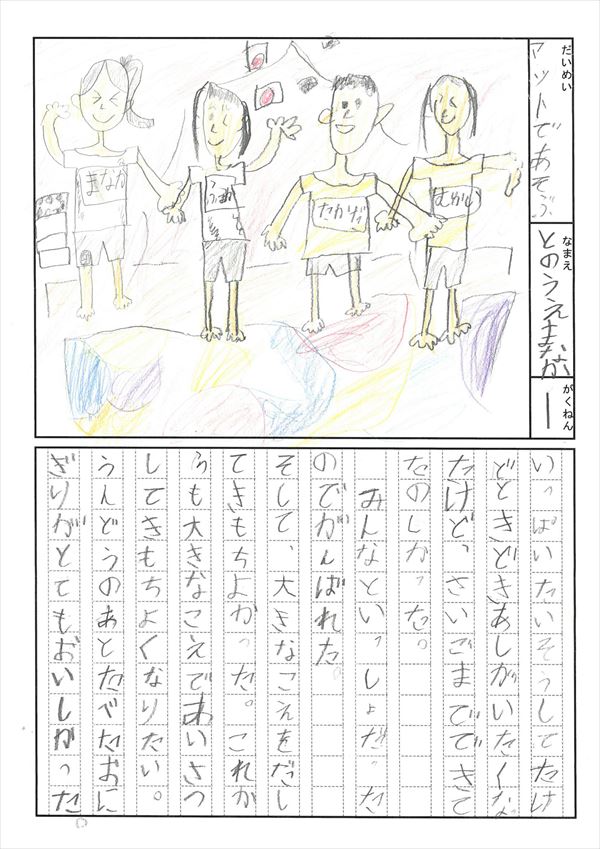 だいめい
マットであそぶ
なまえ
とのうえまなか
がくねん
一
まなか
いっぱいたいそうしてたけ
どときどきあしがいたくなっ
たけど、さいごまでできて
たのしかった。
みんなといっしょだった
のでがんばれた。
そして、大きなこえをだし
てきもちよかった。これか
らも大きなこえであいさつ
してきもちよくなりたい。
うんどうのあとたべたおに
ぎりがとてもおいしかった。